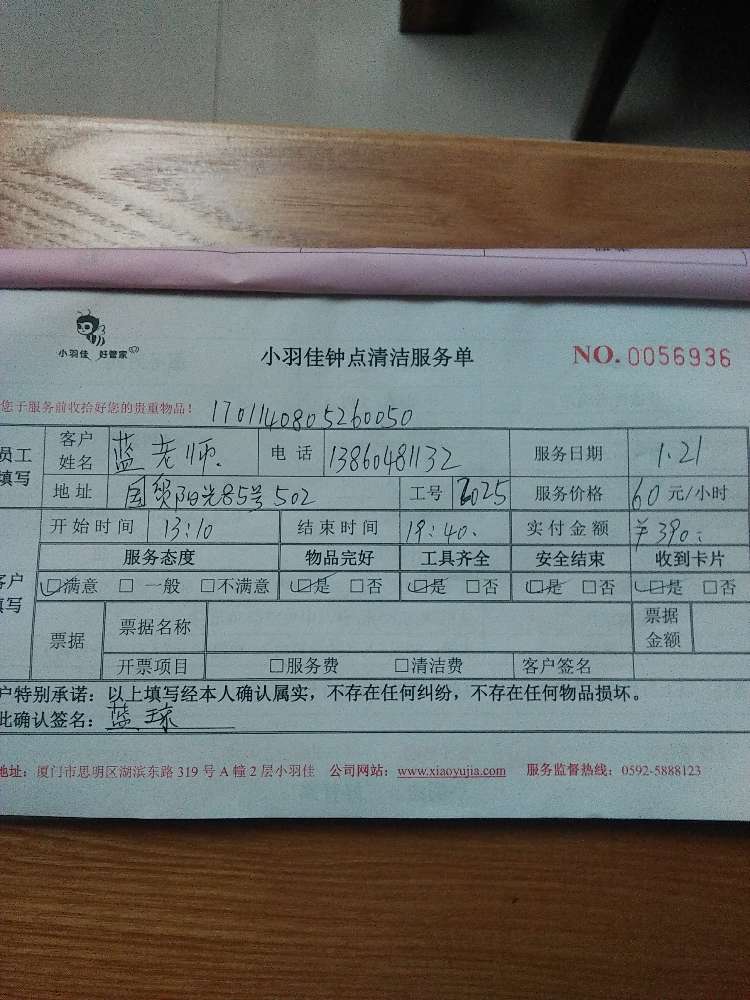 小羽佳 好管家
小羽佳钟点清洁服务单
NO. 0056936
您于服务前收拾好您的贵重物品！
1701140805260050
员工填写 客户姓名 蓝老师. 电话 13860481132 服务日期 1.21
地址 国贸阳光85号502 工号 2025 服务价格 60元/小时
客户填写 开始时间 13:10 结束时间 19:40. 实付金额 ¥390.
服务态度 物品完好 工具齐全 安全结束 收到卡片
☑满意 □一般 □不满意 ☑是 □否 ☑是 □否 ☑是 □否 ☑是 □否
票据 票据名称 票据金额
开票项目 □服务费 □清洁费 客户签名
户特别承诺：以上填写经本人确认属实，不存在任何纠纷，不存在任何物品损坏。
此确认签名：蓝琼
地址：厦门市思明区湖滨东路319号A幢2层小羽佳 公司网站：www.xiaoyujia.com 服务监督热线：0592-5888123